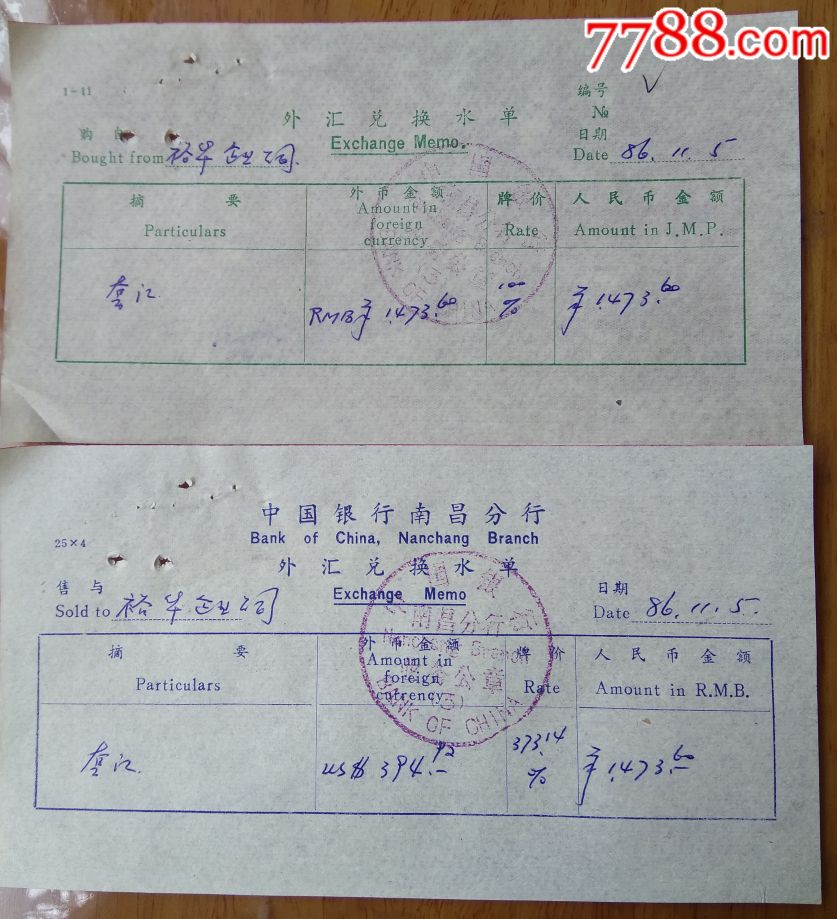 7788.com
1-11
编号
№
V
外汇兑换水单
购自
日期
Exchange Memo.
Bought from 裕华企业公司
Date 86.11.5
摘要
外币金额
牌价
人民币金额
Particulars
Amount in foreign currency
Rate
Amount in J.M.P.
套汇
RMB¥1473.60
100%
¥1473.60
中国银行南昌分行
25×4
Bank of China, Nanchang Branch
外汇兑换水单
售与
日期
Exchange Memo
Sold to 裕华企业公司
Date 86.11.5.
中国银行
南昌分行
Nanchang Branch
公章
(5)
BANK OF CHINA
摘要
外币金额
牌价
人民币金额
Particulars
Amount in foreign currency
Rate
Amount in R.M.B.
套汇
US$ 394.92
373.14%
¥1473.60